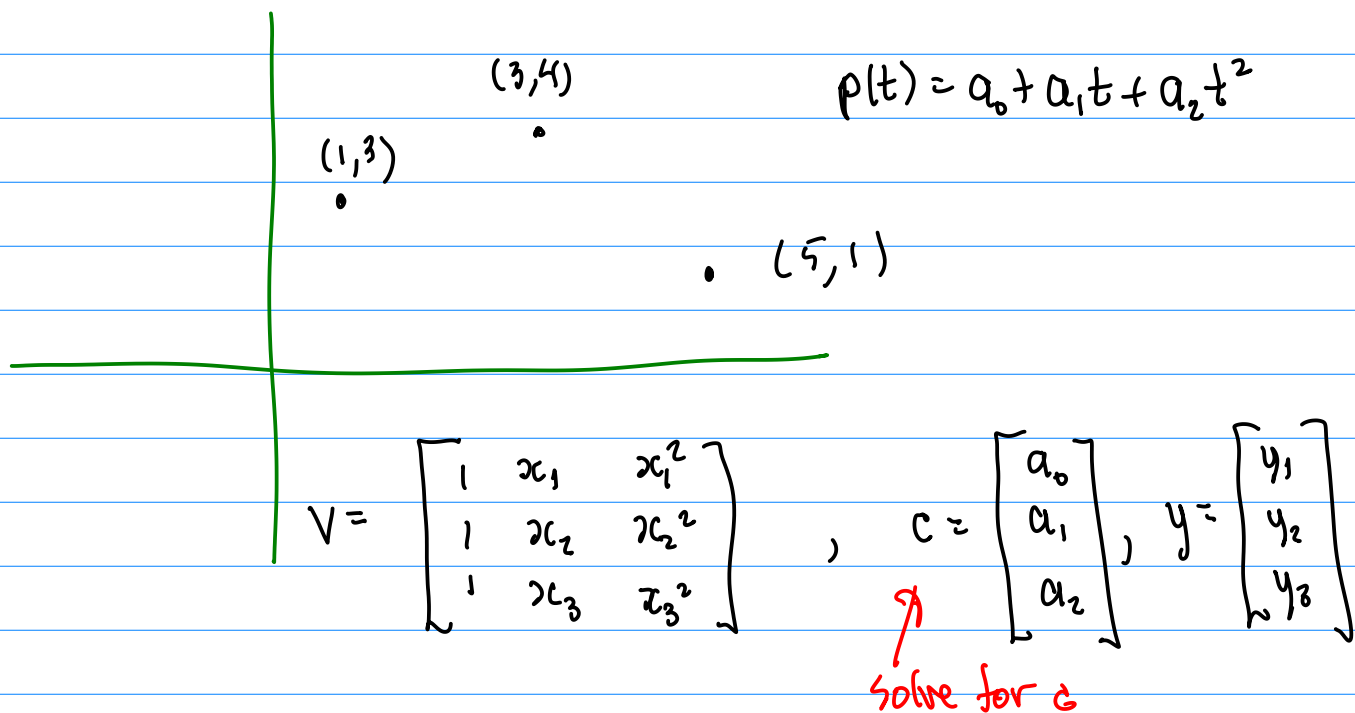 (3,4)
p(t) = a₀ + a₁t + a₂t²
(1,3)
(5,1)
V = [1 x₁ x₁²; 1 x₂ x₂²; 1 x₃ x₃²], c = [a₀; a₁; a₂], y = [y₁; y₂; y₃]
solve for c